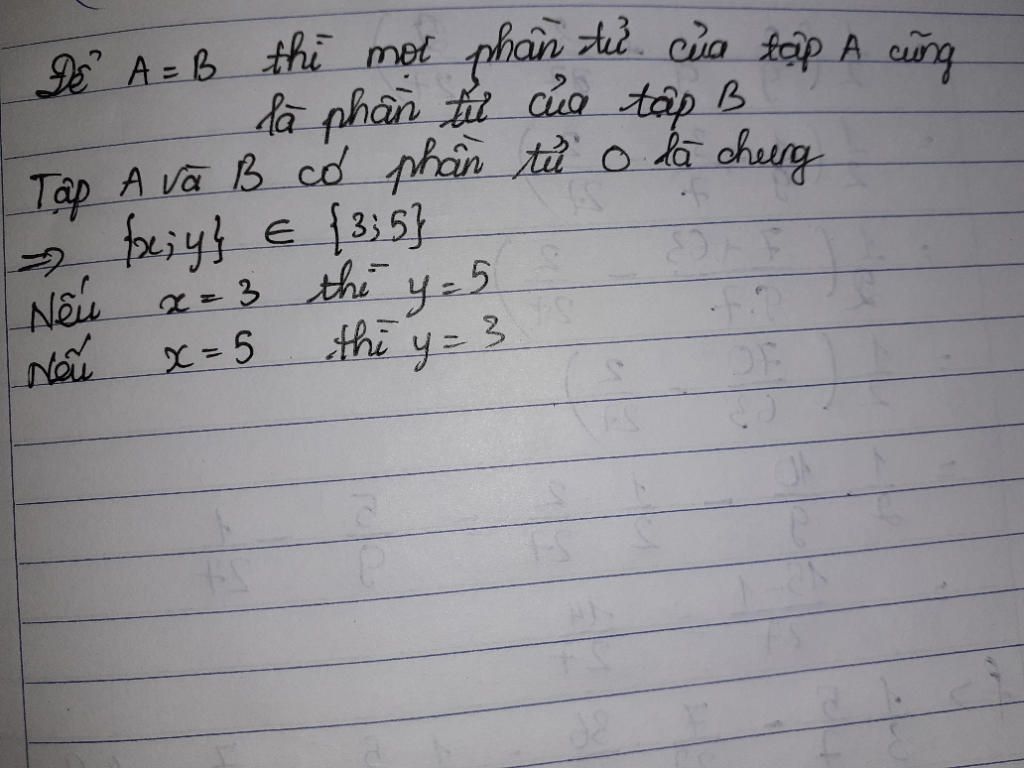 Để A = B thì mọi phần tử của tập A cũng
là phần tử của tập B
Tập A và B có phần tử 0 là chung
=> {x; y} ∈ {3; 5}
Nếu x = 3 thì y = 5
Nếu x = 5 thì y = 3